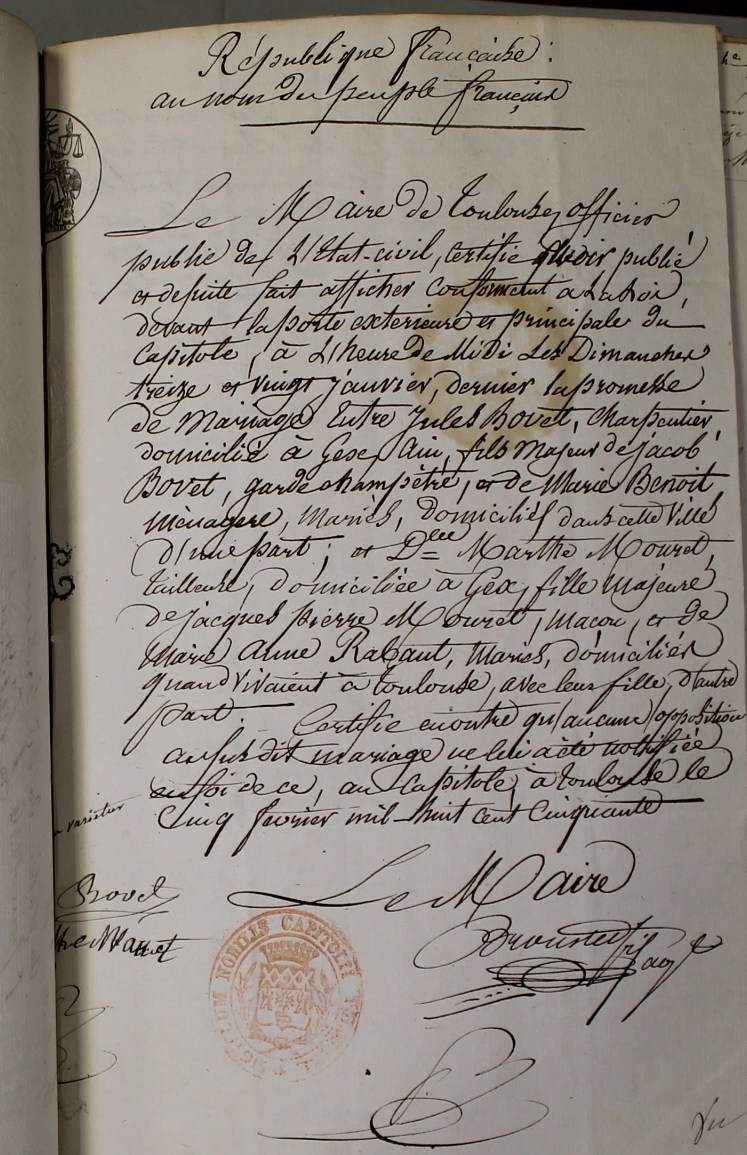 République française :
au nom du peuple français
Le Maire de Toulouse, officier
public de L'Etat-civil, certifie avoir publié
et de suite fait afficher conforment a La Loi,
devant la porte exterieure et principale du
Capitole, à L'heure de Midi Les Dimanches
treize et vingt janvier, dernier la promesse
de Mariage Entre Jules Bovet, charpentier,
domicilié à Gex, Ain, fils Majeur de jacob
Bovet, garde champêtre, et de Marie Benoit
Ménagere, Mariés, domiciliés dans cette Ville
d'une part ; et Dlle Marthe Mouret,
tailleuse, domiciliée à Gex, fille Majeure
de jacques pierre Mouret, Macon, et de
Marie Anne Rabaut, Mariés, domiciliés
quand vivaient à toulouse, avec leur fille, d'autre
part. Certifie en outre qu'aucune opposition
au susdit mariage ne lui a été nottifiée
en foi de ce, au Capitole, à toulouse le
Cinq fevrier mil-huit cent Cinquante
ne varietur
Le Maire
Bovet
NOBILIS CAPITOLII